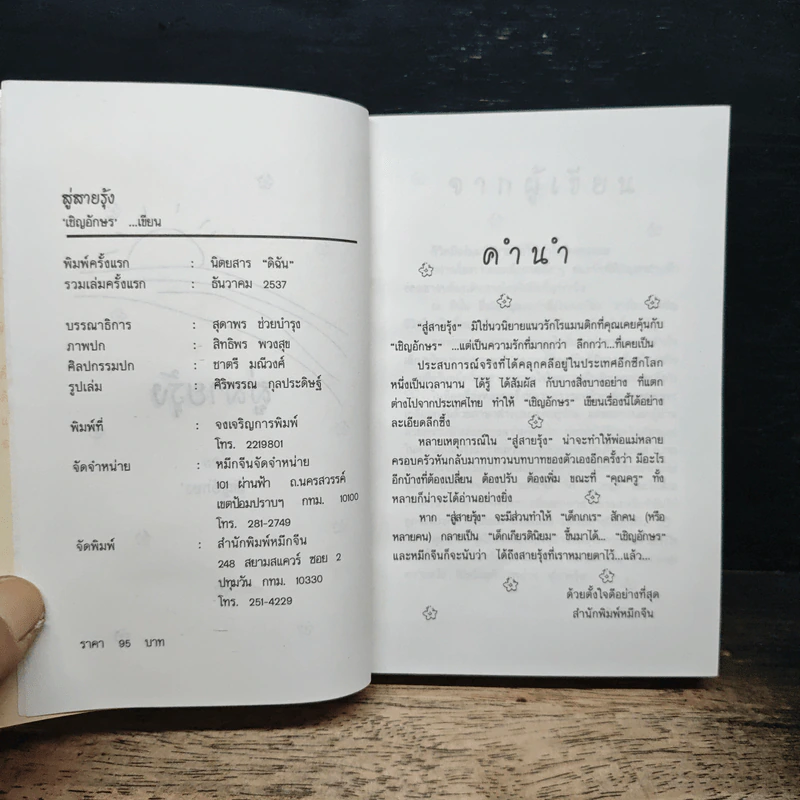 สู่สายรุ้ง
"เชิญอักษร" ...เขียน
พิมพ์ครั้งแรก : นิตยสาร "ดิฉัน"
รวมเล่มครั้งแรก : ธันวาคม 2537
บรรณาธิการ : สุดาพร ช่วยบำรุง
ภาพปก : สิทธิพร พวงสุข
ศิลปกรรมปก : ชาตรี มณีวงศ์
รูปเล่ม : ศิริพรรณ กุลประดิษฐ์
พิมพ์ที่ : จงเจริญการพิมพ์
โทร. 2219801
จัดจำหน่าย : หมึกจีนจัดจำหน่าย
101 ผ่านฟ้า ถ.นครสวรรค์
เขตป้อมปราบฯ กทม. 10100
โทร. 281-2749
จัดพิมพ์ : สำนักพิมพ์หมึกจีน
248 สยามสแควร์ ซอย 2
ปทุมวัน กทม. 10330
โทร. 251-4229
ราคา 95 บาท
คำนำ
"สู่สายรุ้ง" มิใช่นวนิยายแนวรักโรแมนติกที่คุณเคยคุ้นกับ
"เชิญอักษร" ...แต่เป็นความรักที่มากกว่า ลึกกว่า...ที่เคยเป็น
ประสบการณ์จริงที่ได้คลุกคลีอยู่ในประเทศอีกซีกโลก
หนึ่งเป็นเวลานาน ได้รู้ ได้สัมผัส กับบางสิ่งบางอย่าง ที่แตก
ต่างไปจากประเทศไทย ทำให้ "เชิญอักษร" เขียนเรื่องนี้ได้อย่าง
ละเอียดลึกซึ้ง
หลายเหตุการณ์ใน "สู่สายรุ้ง" น่าจะทำให้พ่อแม่หลาย
ครอบครัวหันกลับมาทบทวนบทบาทของตัวเองอีกครั้งว่า มีอะไร
อีกบ้างที่ต้องเปลี่ยน ต้องปรับ ต้องเพิ่ม ขณะที่ "คุณครู" ทั้ง
หลายก็น่าจะได้อ่านอย่างยิ่ง
หาก "สู่สายรุ้ง" จะมีส่วนทำให้ "เด็กเกเร" สักคน (หรือ
หลายคน) กลายเป็น "เด็กเกียรตินิยม" ขึ้นมาได้... "เชิญอักษร"
และหมึกจีนก็จะนับว่า ได้ถึงสายรุ้งที่เราหมายตาไว้...แล้ว...
ด้วยตั้งใจดีอย่างที่สุด
สำนักพิมพ์หมึกจีน